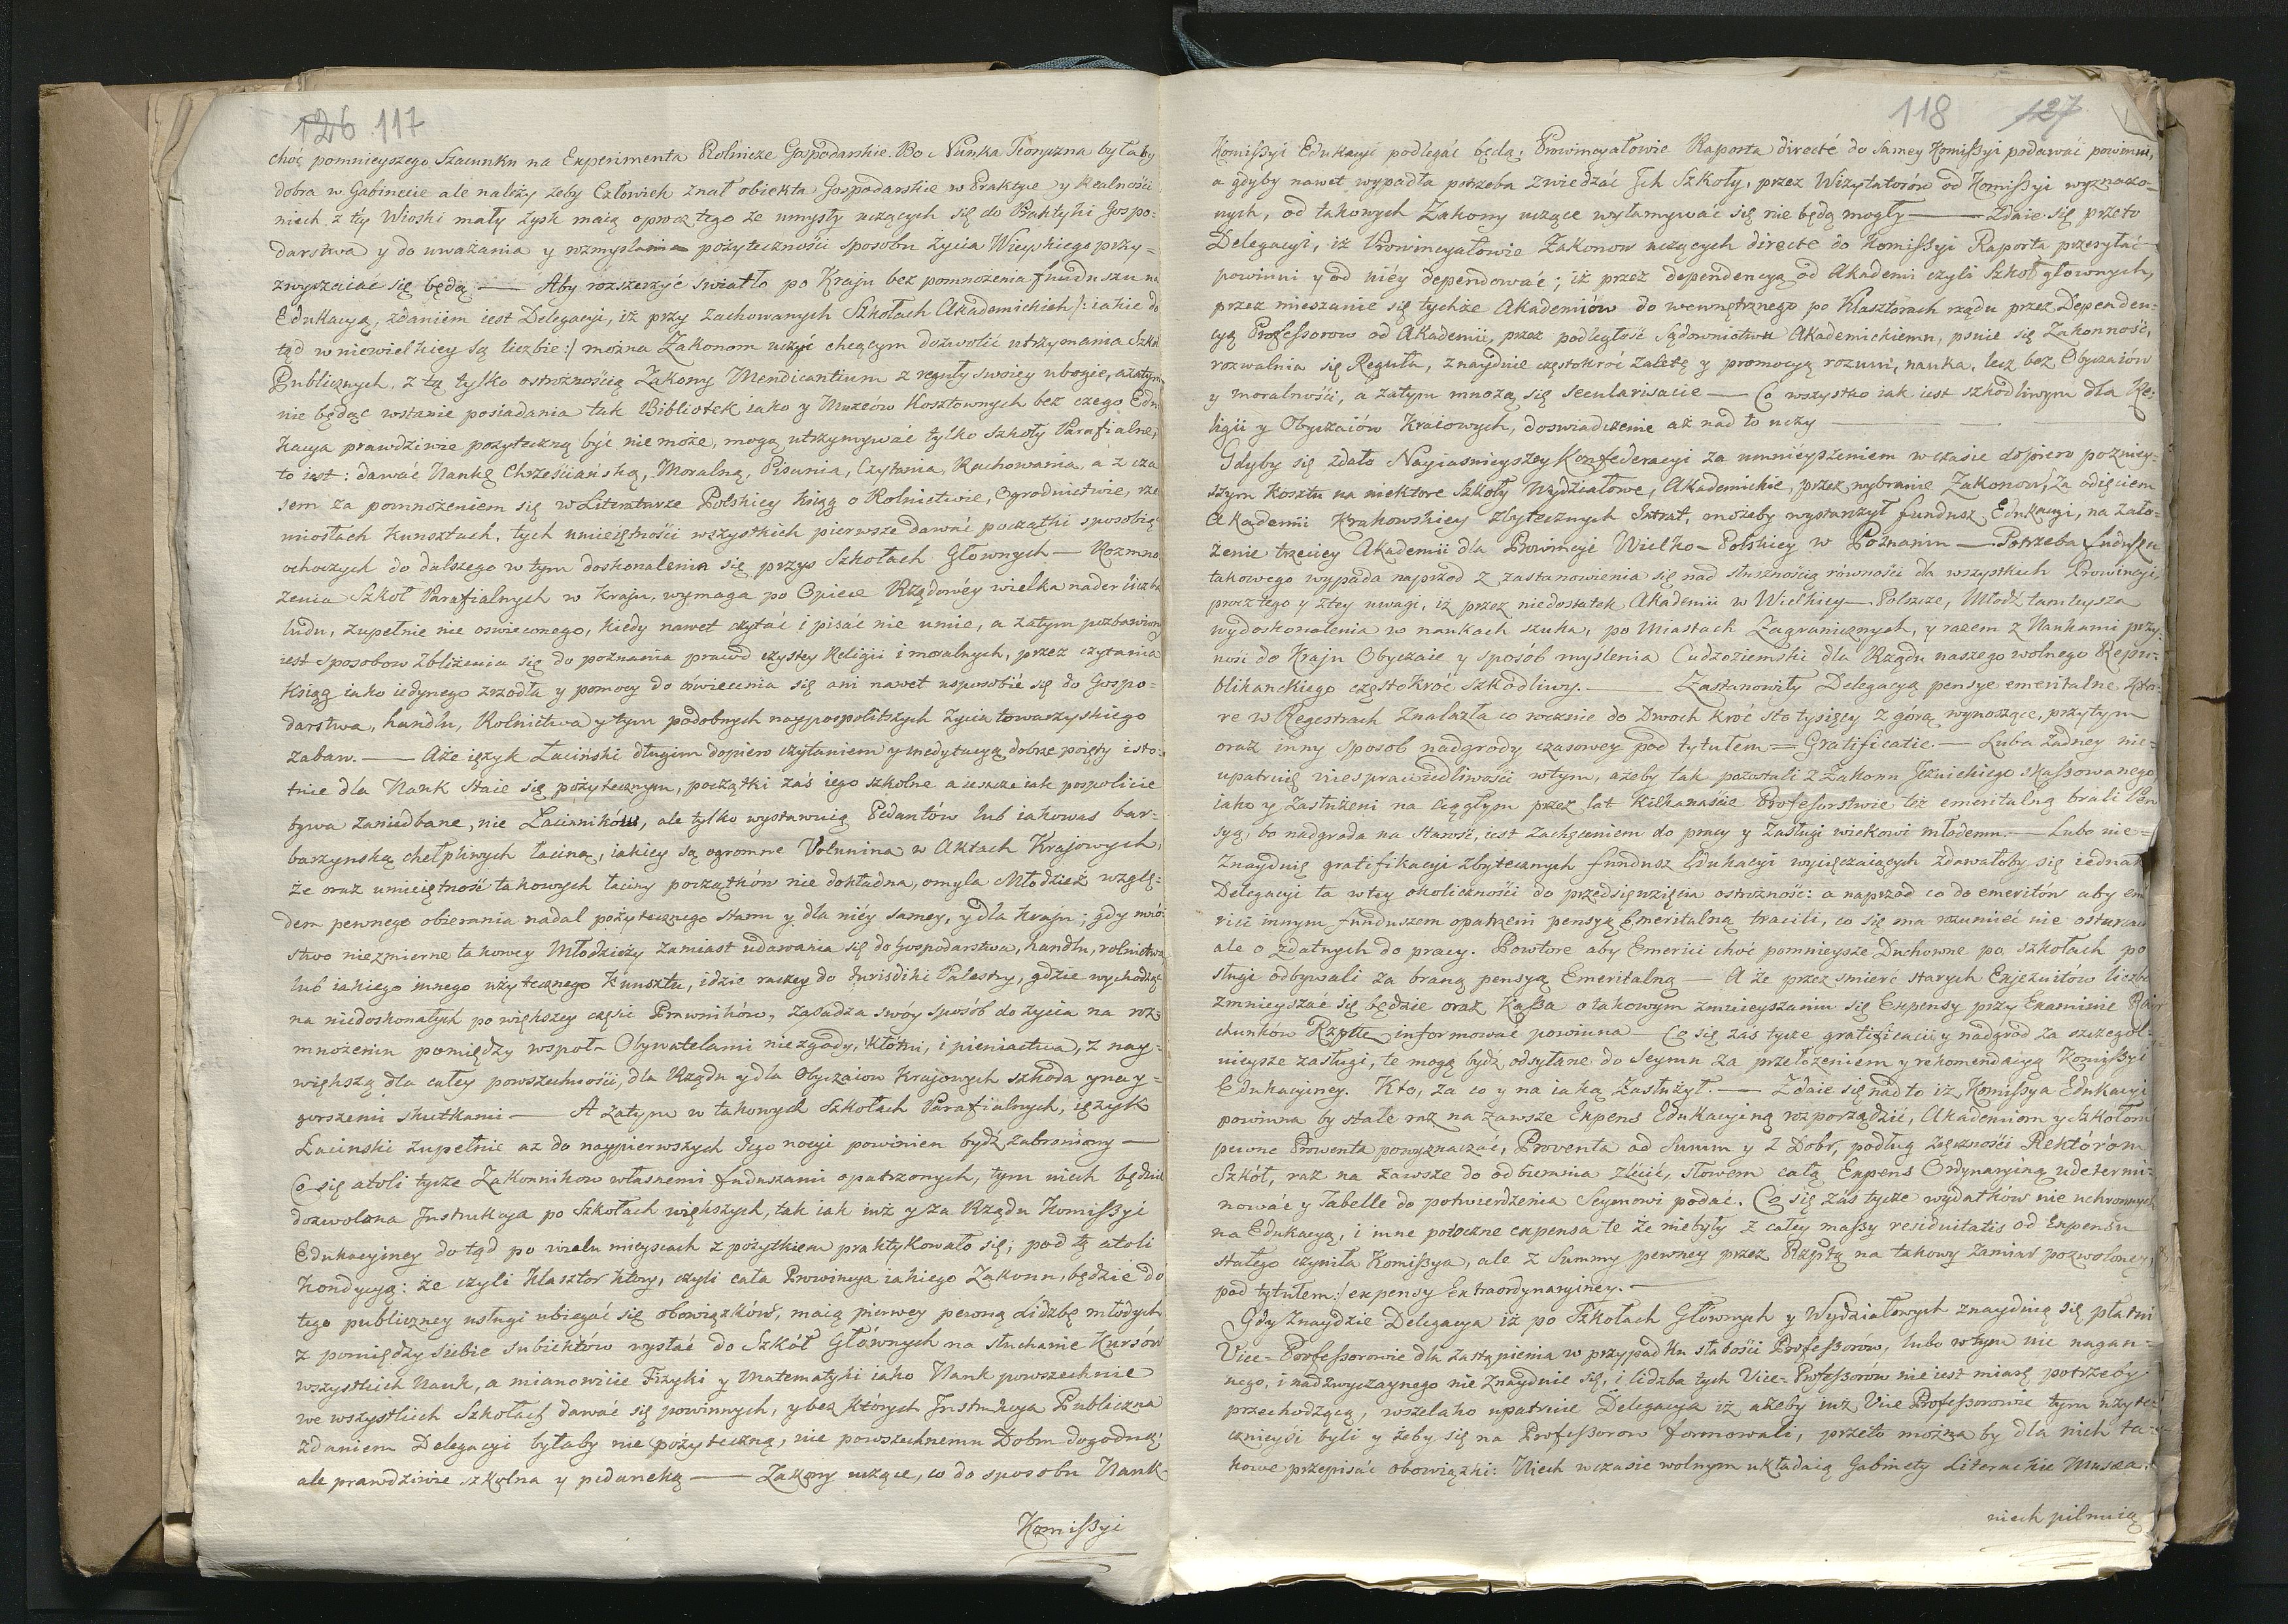 126 117
choć pomnieyszego Szacunku na Experimenta Rolnicze Gospodarskie. Bo Nauka Teoryczna byłaby
dobra w Gabinecie ale należy żeby Człowiek znał obiekta Gospodarskie w Praktyce y Realności
niech z tey Wioski mały zysk maią oprocz tego że umysły uczących się do Praktyki Gospo-
darstwa y do uważania y rozmyslania pożyteczności sposobu życia Wieyskiego przy=
zwyczaiać się będą — Aby rozszerzyć światło po Kraju bez pomnożenia funduszu na
Edukacyą, zdaniem iest Delegacyi, iż przy zachowanych Szkołach Akademickich /: iakie do
tąd w niewielkiey są liczbie :/ można Zakonom uczyć chcącym dozwolić utrzymania Szkół
Publicznych, z tą tylko ostrożnością Zakony Mendicantium z reguły swoiey ubogie, a zatym
nie będąc wstanie posiadania tak Bibliotek iako y Muzeów Kosztownych bez czego Edu
kacya prawdziwie pożyteczną być nie może, mogą utrzymywać tylko szkoły Parafialne,
to iest: dawać Naukę Chrześciańską, Moralną, Pisania, Czytania, Rachowania, a z cza
sem za pomnożeniem się w Literaturze Polskiey ksiąg o Rolnictwie, Ogrodnictwie, rze
miosłach Kunsztach, tych umieiętności wszystkich pierwsze dawać początki sposobią
ochoczych do dalszego w tym doskonalenia się przys Szkołach Głownych — Rozmno
żenia Szkoł Parafialnych w Kraju, wymaga po Opiece Rządowéy wielka nader liczba
ludu, zupełnie nie oswieconego, kiedy nawet czytać i pisać nie umie, a zatym pozbawiony
iest sposobow zbliżenia się do poznania prawd czystey Religii i moralnych, przez czytania
Ksiąg iako iedynego zrzodła y pomocy do oświecenia się ani nawet usposobić się do Gospo=
darstwa, handlu, Rolnictwa y tym podobnych nayprospolitszych życia towarzyskiego
zabaw. — Aże ięzyk Łaciński długim dopiero czytaniem y medytacyą dobrze poięty isto=
tnie dla Nauk staie się pożytecznym, początki zaś iego szkolne a ieszcze iak pospolicie
bywa zaniedbane, nie Łacinników, ale tylko wystawuią Pedantów lub iakowąs bar-
barzynską chełpliwych łaciną, iakiey są ogromne Volumina w Aktach Krajowych,
że oraz umieiętność takowych łaciny początków nie dokładna, omyla Młodzież wzglę=
dem pewnego obierania nadal pożytecznego stanu y dla niéy samey, y dla kraju; gdy mnó=
stwo niezmierne takowey Młodzieży zamiast udawania się do Gospodarstwa, handlu, rolnictwa
lub iakiego innego użytecznego Kunsztu, idzie raczey do Jurisdikc Palestry, gdzie wychodząc
na niedoskonałych po większey części Prawników, zasadza swóy sposób do życia na roz=
mnożeniu pomiędzy wspoł-Obywatelami niezgody, kłótni, i pieniactwa, z nay=
większą dla całey powszechności, dla Rządu y dla Obyczaiow Krajowych szkodą y nay=
gorszemi skutkami — A zatym w takowych Szkołach Parafialnych, ięzyk
Łacinski zupełnie aż do naypierwszych Jego nocyi powinien bydź zabroniony —
Co się atoli tycze Zakonnikow własnemi funduszami opatrzonych, tym niech będzie
dozwolona Jnstrukcya po Szkołach większych, tak iak już y za Rządu Komissyi
Edukacyiney do tąd po wielu mieyscach z pożytkiem praktykowało się; pod tą atoli
kondycyą: że czyli Klasztor który, czyli cała Prowincya iakiego Zakonu, będzie do
tego publiczney usługi ubiegać się obowiązków, maią pierwey pewną Lidzbę młodych
z pomiędzy siebie subiektów wysłać do Szkół Głównych na słuchanie Kursów
wszystkich Nauk, a mianowicie Fizyki y Matematyki iako Nauk powszechnie
we wszystkich Szkołach dawać się powinnych, y bez których Jnstrukcya Publiczna
zdaniem Delegacyi byłaby nie pożyteczną, nie powszechnemu Dobru dogodną
ale prawdziwie szkolna y pedancką — Zakony uczące, co do sposobu Nauk
Komissyi
118 127
Komissyi Edukacyi podlegać będą; Prowincyałowie Raporta directé do samey Komissyi podawać powinni,
a gdyby nawet wypadła potrzeba zwiedzać Jch Szkoły, przez Wizytatorów od Komissyi wyznaczo=
nych, od takowych Zakony uczące wyłamywać się nie będą mogły — Zdaie się przeto
Delegacyi, iż Prowincyałowie Zakonow uczących directe do Komissyi Raporta przesyłać
powinni y od niéy dependować; iż przez dependencyą od Akademi czyli Szkoł głownych,
przez mieszanie się tychże Akademiów do wewnętrznego po Klasztorach rządu przez Dependen=
cyą Professorow od Akademii, przez podległość Sądownictwu Akademickiemu, psuie się Zakonność,
rozwalnia się Reguła, znayduie częstokroć zaletę y promocyą rozum, nauka, lecz bez Obyczaiów
y moralności, a zatym mnożą się secularisacie — Co wszystko iak iest szkodliwym dla Re=
ligii y Obyczaiów Kraiowych, doswiadczenie aż nad to uczy —
Gdyby się zdało Nayiasnieyszey Konfederacyi za umnieyszeniem wczasie dopiero poźniey=
szym kosztu na niektore Szkoły Wydziałowe, Akademickie, przez wybranie Zakonow, za odięciem
Akademii Krakowskiey zbytecznych Jntrat, możeby wystarczył fundusz Edukacyi, na zało=
żenie trzeciey Akademii dla Prowincyi Wielko-Polskiey w Poznaniu — Potrzeba funduszu
takowego wypada naprzod z zastanowienia się nad słusznością równości dla wszystkich Prowincyi,
procz tego y ztey uwagi, iż przez niedostatek Akademii w Wielkiey-Polszcze, Młodź tamteysza
wydoskonalenia w naukach szuka, po Miastach Zagranicznych, y razem z Naukami przy=
nosi do Kraju Obyczaie y sposób myslenia Cudzoziemski dla Rządu naszego wolnego Repu=
blikanckiego częstokroć szkodliwy. — Zastanowiły Delegacyą pensye emeritalne któ=
re w Regestrach znalazła co rocznie do Dwoch kroć sto tysięcy z górą wynoszące, przytym
oraz inny sposob nadgrody czasowey pod tytułem = Gratificatie. — Luba żadney nie=
upatruię niesprawiedliwości wtym, ażeby tak pozostali z Zakonu Jezuickiego skassowanego,
iako y zasłużeni na ciągłym przez lat kilkanaście Professorstwie też emeritalną brali Pen
syą, bo nadgroda na starość, iest zachęceniem do pracy y zasługi wiekowi młodemu. — Lubo nie=
znayduię gratifikacyi zbytecznych fundusz Edukacyi wyięczaiących zdawałoby się iednak
Delegacyi ta wtey okoliczności do przedsięwzięcia ostrożność: a naprzod co do emeritów aby eme
rici innym funduszem opatrzeni pensyą Emeritalną tracili, co się ma rozumieć nie ostarcach
ale o zdatnych do pracy. Powtore aby Emerici choć pomnieysze Duchowne po szkołach po
sługi odbywali za braną pensyą Emeritalną — A że przez smierć starych Exjezuitów liczba
zmnieyszać się będzie oraz Kassa o takowym zmnieyszaniu się Expensy przy Examinie Ra
chunkow Rzpltę informować powinna — Co się zas tycze gratificacii y nadgrod za szczegol=
nieysze zasługi, te mogą bydź odsyłane do Seymu za przełożeniem y rekomendacyą Komissyi
Edukacyiney. Kto, za co y na iaką Zasłużył. — Zdaie się nad to iż Komissya Edukacyi
powinna by stale raz na zawsze Expens Edukacyiną rozporządzić, Akademiom y Szkołom
pewne Prowenta powyznaczać, Proventa od Summ y z Dobr, podług ręczności Rektórom
Szkół, raz na zawsze do odbierania zlécić, słowem całą Expens Ordynaryiną udetermi=
nować y Tabelle do potwierdzenia Seymowi podać. Co się zás tycze wydatków nie uchronnych
na Edukacyą, i inne potoczne expensa te że niebyły z całey massy residuitatis od Expensu
stałego czyniła Komissya, ale z Summy pewney przez Rzpltą na takowy zamiar pozwoloney,
pod tytułem: expensy Extraordynaryiney. —
Gdy Znaydzie Delegacya iż po Szkołach Głównych y Wydziałowych znayduią się płatni
Vice-Professorowie dla zastąpienia w przypadku słabości Professorów, lubo wtym nic nagan=
nego, i nadzwyczaynego nie znayduie się, i lidzba tych Vice-Professorów nie iest miarę potrzeby
przechodzącą, wszelako upatruie Delegacya iż ażeby iuż Vice Professorowie tym użyte=
cznieysi byli y żeby się na Professorow formowali, przeto można by dla nich ta-
kowe przepisać obowiązki: Niech wczasie wolnym układaią Gabinety Literackie Musea,
niech pilnuią